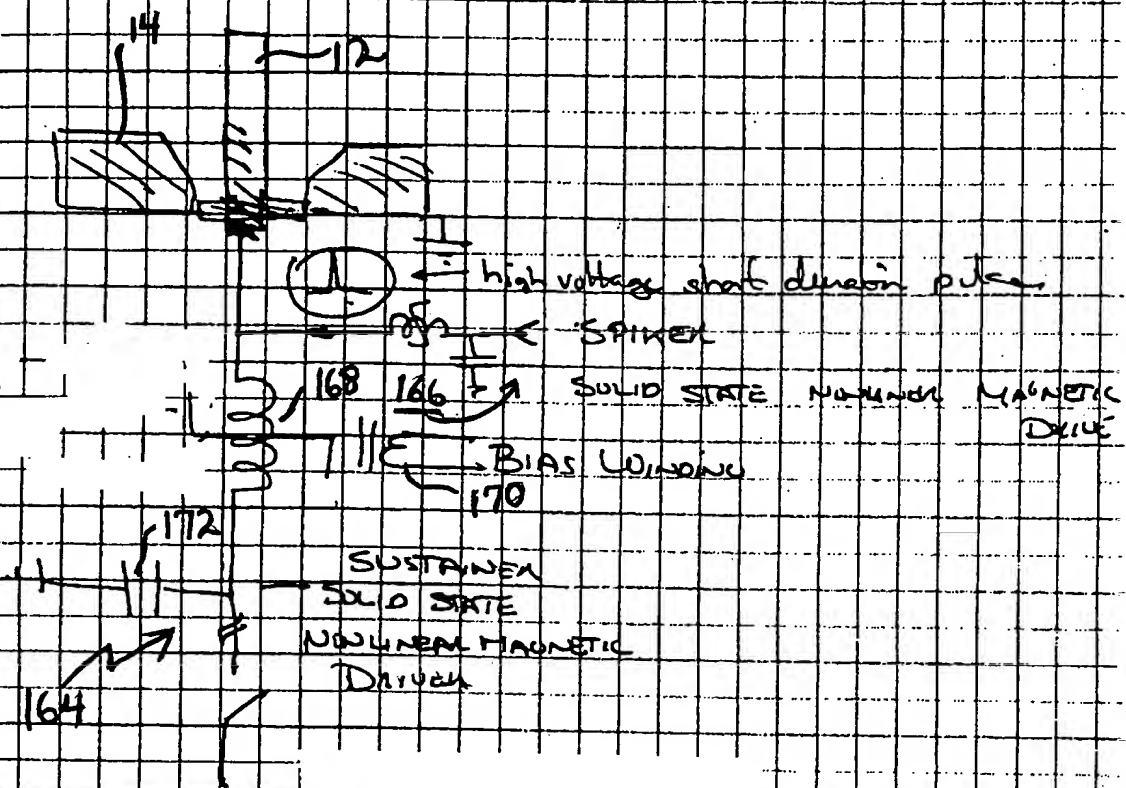 14
112
high voltage short duration pulse
SPIKER
168
166
SOLID STATE NONLINEAR MAGNETIC
DRIVE
BIAS WINDING
170
172
SUSTAINER
SOLID STATE
NONLINEAR MAGNETIC
DRIVER
164